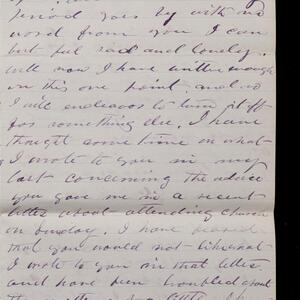 period goes by with no
word from you I can
but feel sad and lonely.
well now I have written enough
on this one point and so
I will endeavor to turn it off
for something else. I have
thought some time on what
I wrote to you in my
last concerning the advice
you gave me in a recent
letter about attending church
on Sunday. I have
that you would not like what
I wrote to you in that letter
and have been troubled about